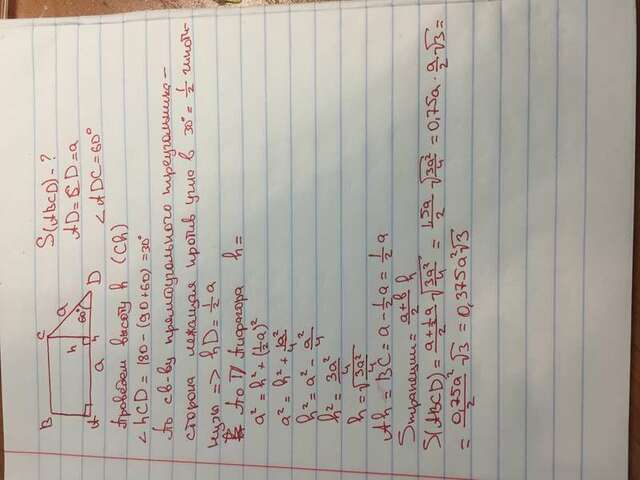 B C
a
h
60°
A a h D
S(ABCD) - ?
AD = CD = a
∠ADC = 60°
Проведем высоту h (Ch)
∠hCD = 180 - (90+60) = 30°
По св-ву прямоугольного треугольника -
сторона лежащая против угла в 30° = 1/2 гипоте-
нузы => hD = 1/2 a
По Т/ Пифагора h =
a² = h² + (1/2 a)²
a² = h² + 1a²/4
h² = a² - a²/4
h² = 3a²/4
h = √(3a²/4)
Ah = BC = a - 1/2 a = 1/2 a
Sтрапеции = (a+b)/2 h
S(ABCD) = (a + 1/2 a)/2 √(3a²/4) = 1,5a/2 √(3a²/4) = 0,75a · a/2 √3 =
= 0,75a²/2 √3 = 0,375a²√3